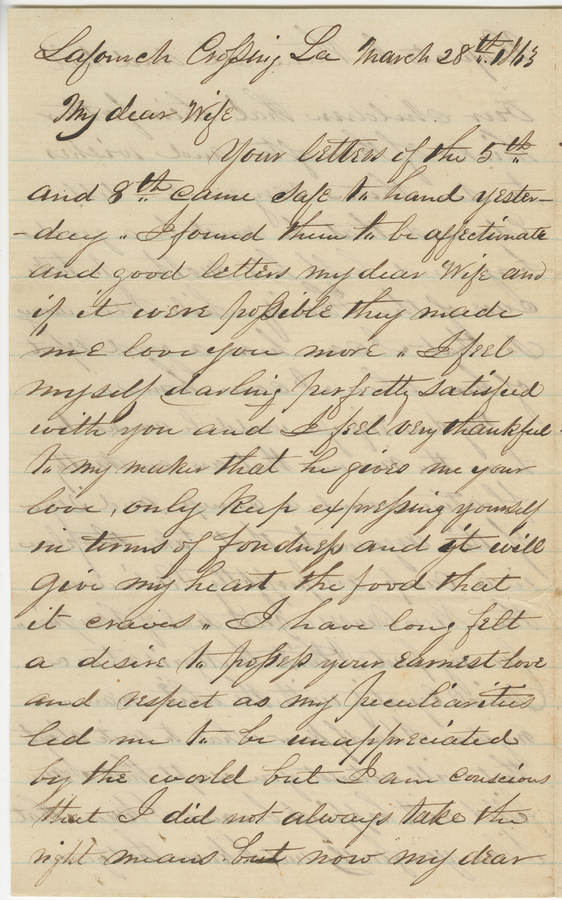 Lafourch Crossing La March 28th 1863
My dear Wife
Your letters of the 5th
and 8th came safe to hand yester-
-day. I found them to be affectionate
and good letters my dear Wife and
if it were possible they made
me love you more. I feel
myself darling perfectly satisfied
with you and I feel very thankful
to my maker that he gives me your
love, only keep expressing yourself
in terms of fondness and it will
give my heart the food that
it craves. I have long felt
a desire to possess your earnest love
and respect as my peculiarities
led me to be unappreciated
by the world but I am conscious
that I did not always take the
right means but now my dear